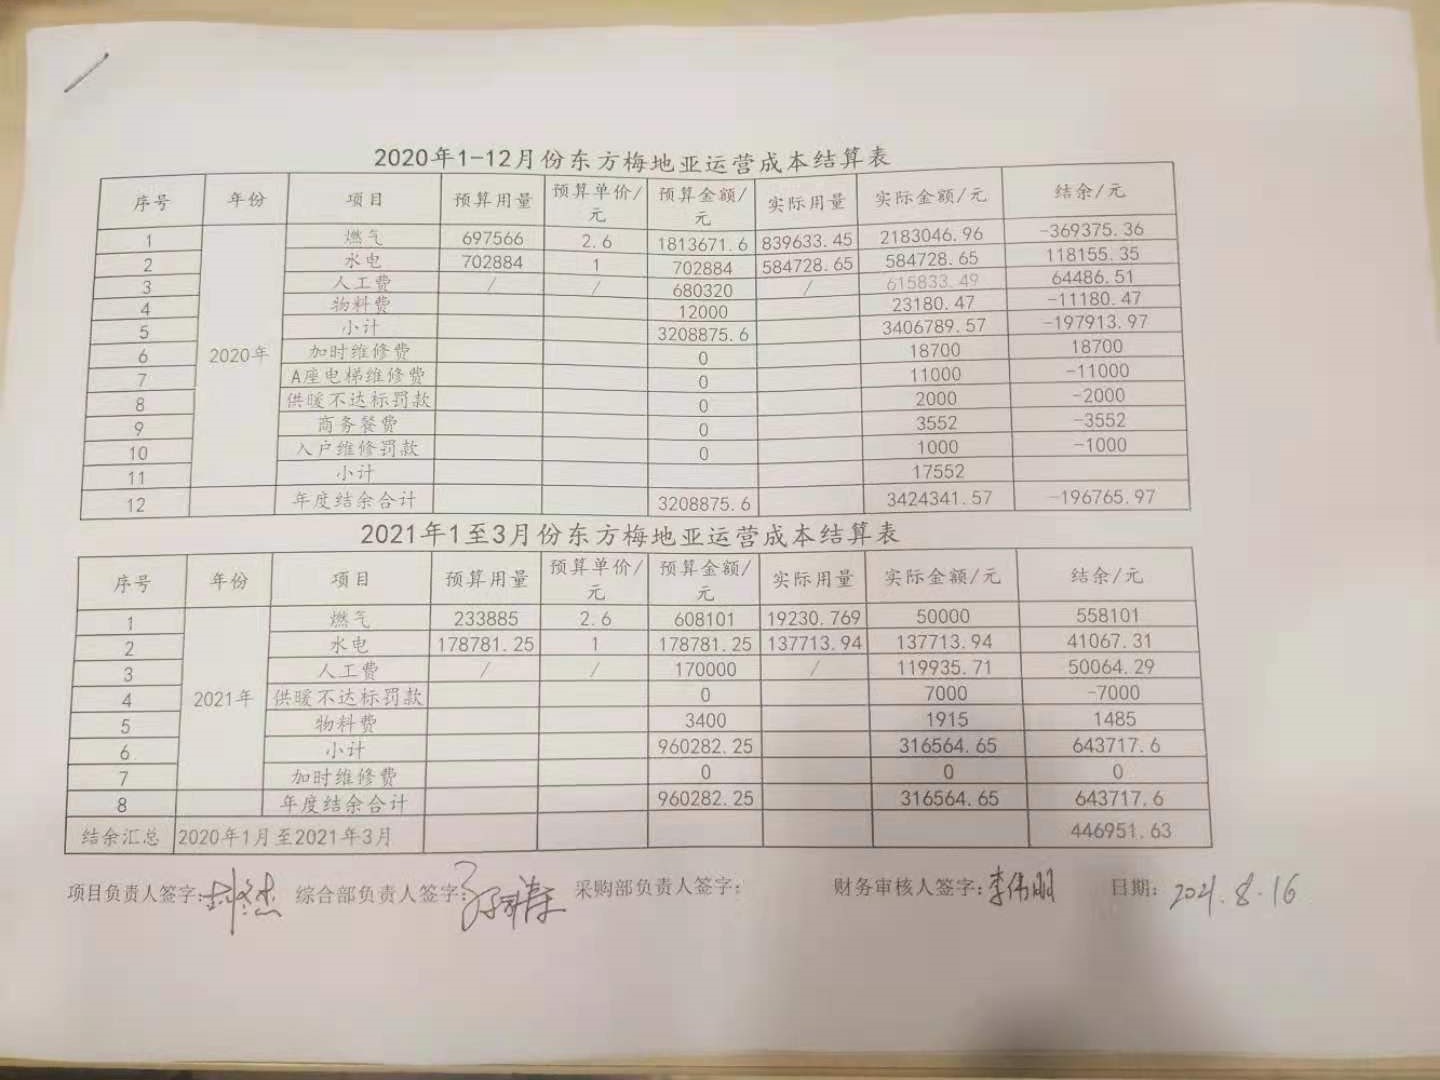 2020年1-12月份东方梅地亚运营成本结算表
序号 年份 项目 预算用量 预算单价/元 预算金额/元 实际用量 实际金额/元 结余/元
1 燃气 697566 2.6 1813671.6 839633.45 2183046.96 -369375.36
2 水电 702884 1 702884 584728.65 584728.65 118155.35
3 人工费 / / 680320 / 615833.49 64486.51
4 物料费 12000 23180.47 -11180.47
5 小计 3208875.6 3406789.57 -197913.97
6 2020年 加时维修费 0 18700 18700
7 A座电梯维修费 0 11000 -11000
8 供暖不达标罚款 0 2000 -2000
9 商务餐费 0 3552 -3552
10 入户维修罚款 0 1000 -1000
11 小计 17552
12 年度结余合计 3208875.6 3424341.57 -196765.97
2021年1至3月份东方梅地亚运营成本结算表
序号 年份 项目 预算用量 预算单价/元 预算金额/元 实际用量 实际金额/元 结余/元
1 燃气 233885 2.6 608101 19230.769 50000 558101
2 水电 178781.25 1 178781.25 137713.94 137713.94 41067.31
3 人工费 / / 170000 / 119935.71 50064.29
4 2021年 供暖不达标罚款 0 7000 -7000
5 物料费 3400 1915 1485
6 小计 960282.25 316564.65 643717.6
7 加时维修费 0 0 0
8 年度结余合计 960282.25 316564.65 643717.6
结余汇总 2020年1月至2021年3月 446951.63
项目负责人签字: 综合部负责人签字: 采购部负责人签字: 财务审核人签字:李伟明 日期: 2021.8.16